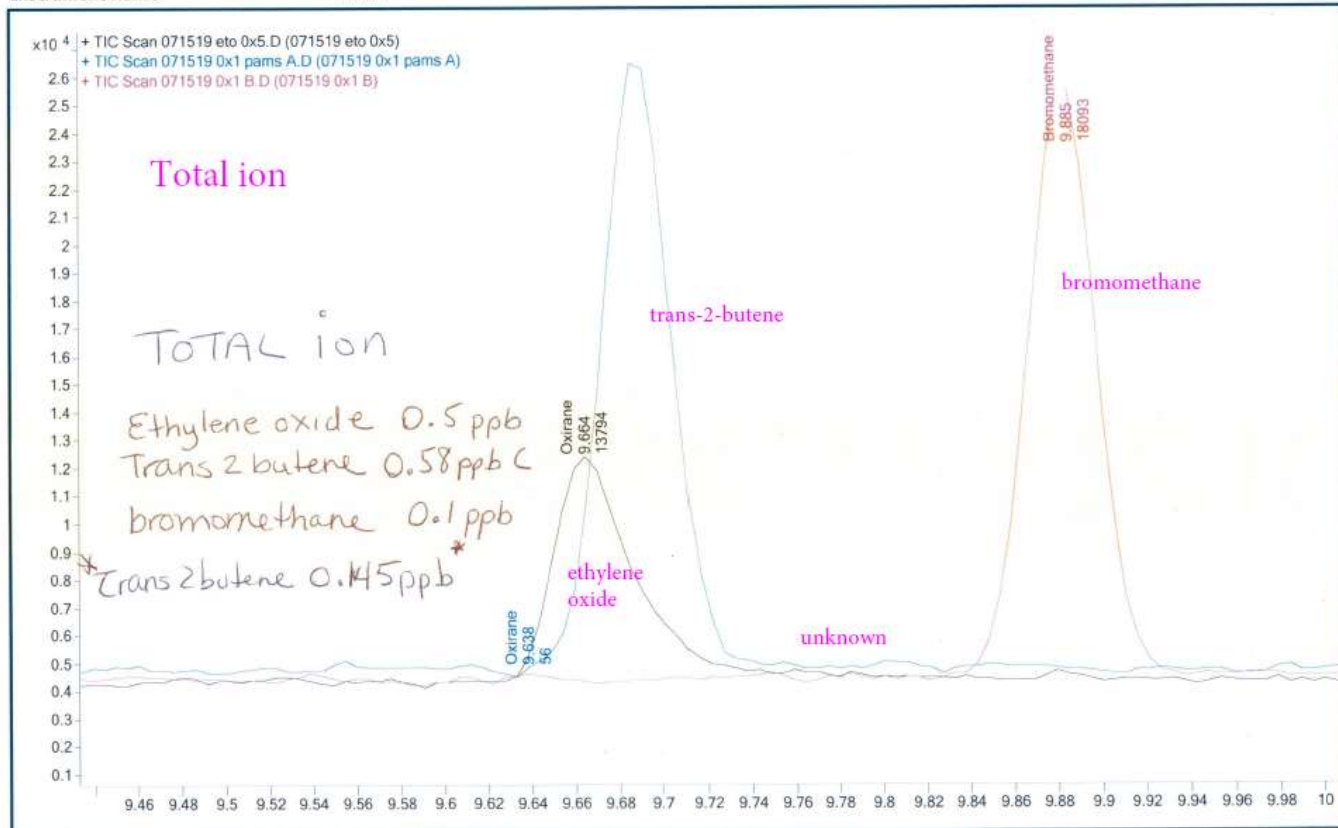 x10 4
+ TIC Scan 071519 eto 0x5.D (071519 eto 0x5)
+ TIC Scan 071519 0x1 pams A.D (071519 0x1 pams A)
+ TIC Scan 071519 0x1 B.D (071519 0x1 B)
2.6
2.5
2.4
2.3
2.2
2.1
2
1.9
1.8
1.7
1.6
1.5
1.4
1.3
1.2
1.1
1
0.9
0.8
0.7
0.6
0.5
0.4
0.3
0.2
0.1
Total ion
TOTAL ion
Ethylene oxide 0.5 ppb
Trans 2 butene 0.58 ppb C
bromomethane 0.1 ppb
* Trans 2 butene 0.145 ppb *
Oxirane
9.638
56
Oxirane
9.664
13794
ethylene
oxide
trans-2-butene
unknown
Bromomethane
9.885
18093
bromomethane
9.46 9.48 9.5 9.52 9.54 9.56 9.58 9.6 9.62 9.64 9.66 9.68 9.7 9.72 9.74 9.76 9.78 9.8 9.82 9.84 9.86 9.88 9.9 9.92 9.94 9.96 9.98 10